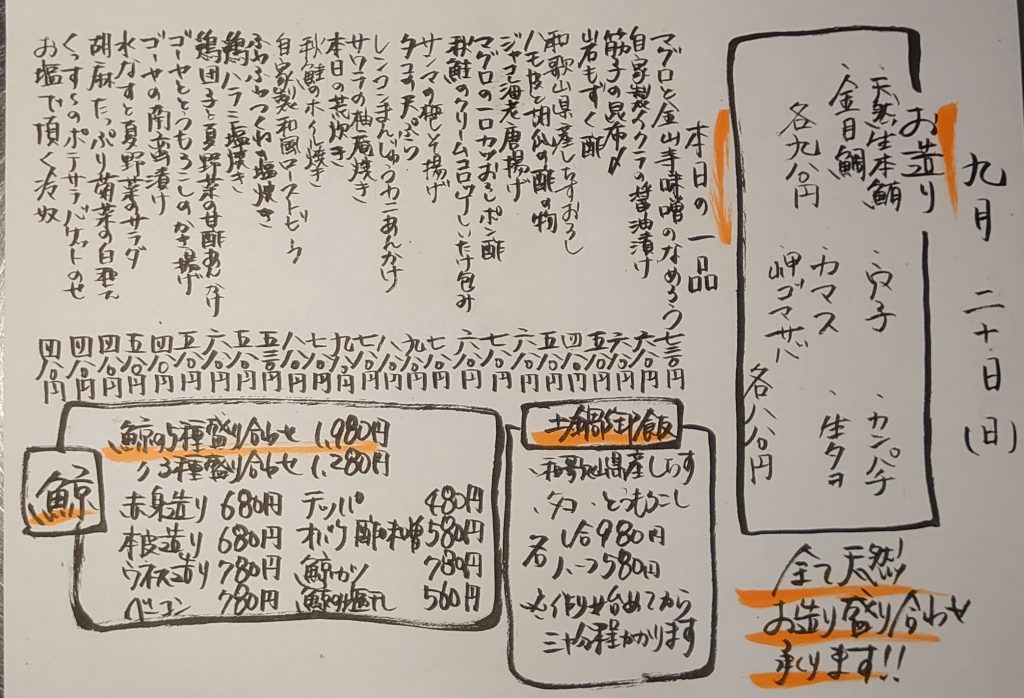 九月二十日(日)
お造り
・天然生本鮪
・金目鯛
各九八〇円
・穴子
・カマス
・岬ゴマサバ
・カンパチ
・生タコ
各八八〇円
全て天然!
お造り盛り合わせ
承ります!!
本日の一品
マグロと金山寺味噌のなめろう 七三〇円
自家製イクラの醤油漬け 六八〇円
筋子の昆布〆 六八〇円
岩もずく酢 五八〇円
和歌山県産しらすおろし 四八〇円
ハモ皮と胡瓜の酢の物 五八〇円
ジャコ海老唐揚げ 六八〇円
マグロの一口カツおろしポン酢 七八〇円
秋鮭のクリームコロッケしいたけ包み 六八〇円
サンマの梅しそ揚げ 七八〇円
タコの天ぷら 九八〇円
レンコンまんじゅうカニあんかけ 八八〇円
サワラの柚庵焼き 七八〇円
本日の荒炊き 九八〇円
秋鮭のホイル焼き 七八〇円
自家製和風ローストビーフ 八八〇円
ふわふわつくね塩焼き 五三〇円
鶏ハラミ塩焼き 五八〇円
鶏団子と夏野菜の甘酢あんかけ 六八〇円
ゴーヤととうもろこしのかき揚げ 五八〇円
ゴーヤの南蛮漬け 四八〇円
水なすと夏野菜のサラダ 五八〇円
胡麻たっぷり菊菜の白和え 四八〇円
くんすらのポテサラバゲットのせ 四八〇円
お塩で頂く冷奴 四八〇円
土鍋御飯
・和歌山県産しらす
・タコ・とうもろこし
各 1合980円
ハーフ580円
☆作り始めてから
三十分程かかります
鯨
鯨の5種盛り合わせ 1,980円
〃3種盛り合わせ 1,280円
赤身造り 680円
本皮造り 680円
ウネス造り 780円
ベーコン 780円
テッパ 480円
オバケ酢味噌 580円
鯨カツ 780円
鯨の塩ゆで 560円